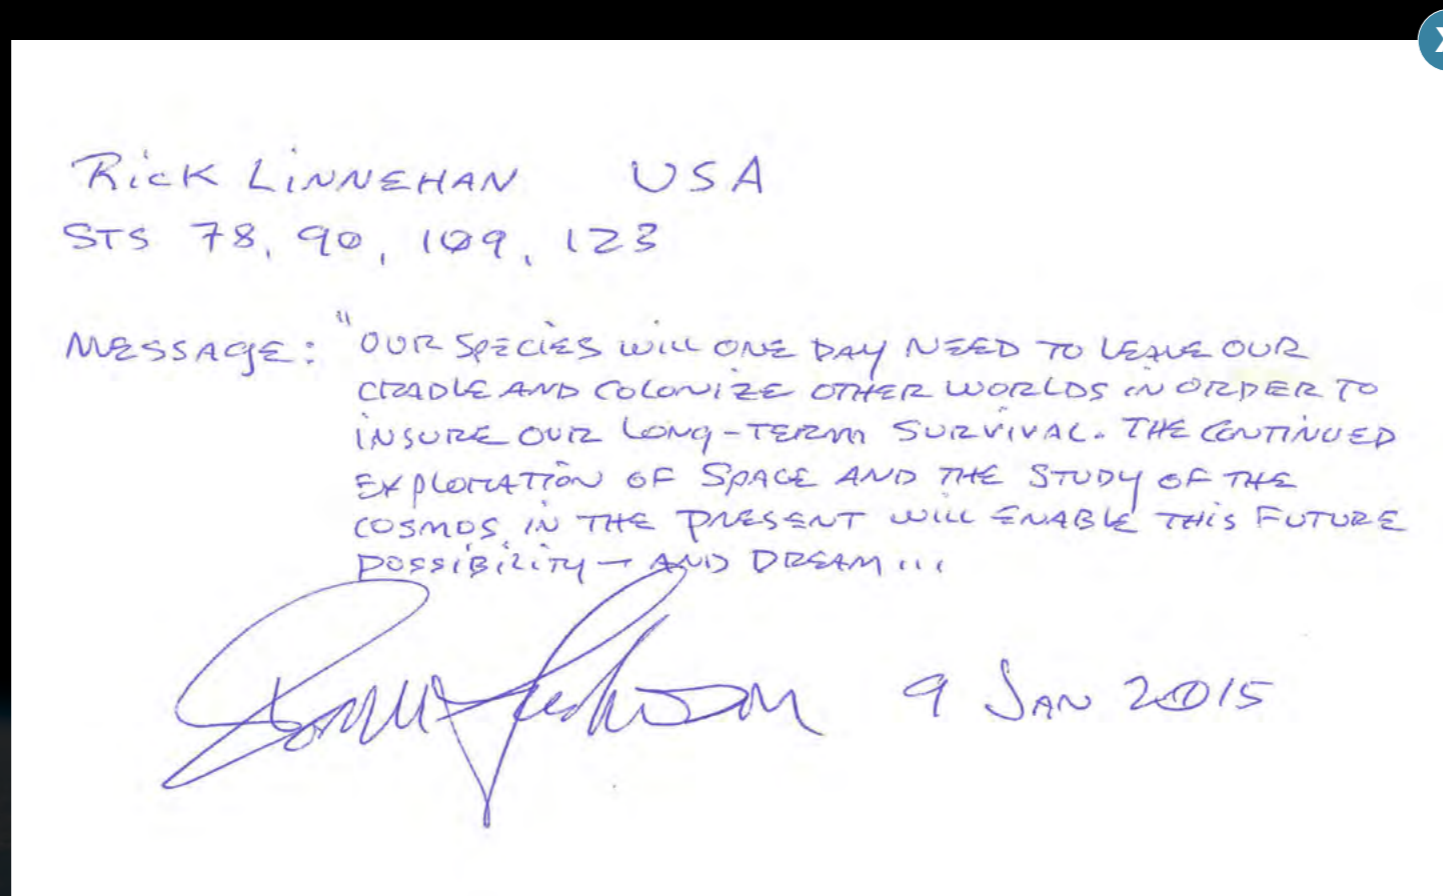 RiCK LiNNEHAN USA
STS 78, 90, 109, 123
MESSAGE: "OUR SPECiES WiLL ONE DAY NEED TO LEAVE OUR
CRADLE AND COLONiZE OTHER WORLDS iN ORDER TO
iNSURE OUR LONG-TERM SURViVAL. THE CONTiNUED
EXPLORATiON OF SPACE AND THE STUDY OF THE
COSMOS iN THE PRESENT WiLL ENABLE THiS FUTURE
POSSiBiLiTY - AND DREAM...
9 JAN 2015
X